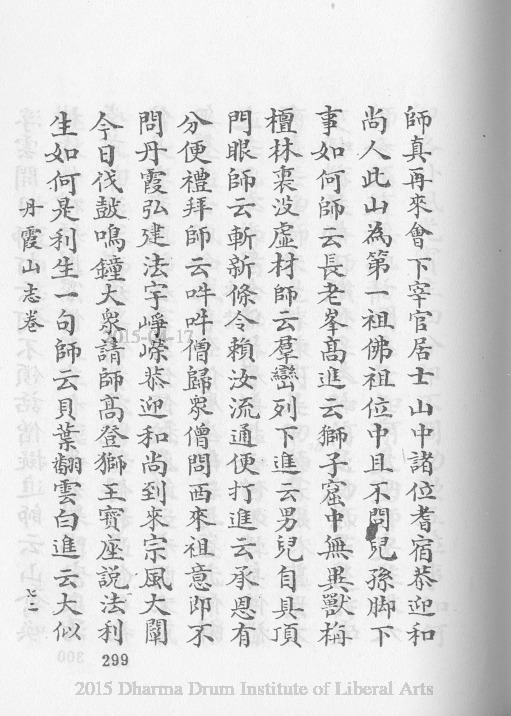 師真再來會下宰官居士山中諸位耆宿恭迎和
尚人此山為第一祖佛祖位中且不問兒孫脚下
事如何師云長老峯高進云獅子窟中無異獸栴
檀林裏沒虛材師云羣巒列下進云男兒自具頂
門眼師云斬新條令賴汝流通便打進云承恩有
分便禮拜師云吽吽僧歸衆僧問西來祖意即不
問丹霞弘建法宇崢嶸恭迎和尚到來宗風大闡
今日伐鼓鳴鐘大衆請師高登獅王寶座説法利
生如何是利生一句師云貝葉翻雲白進云大似
丹霞山志卷
七二
299
2015 Dharma Drum Institute of Liberal Arts